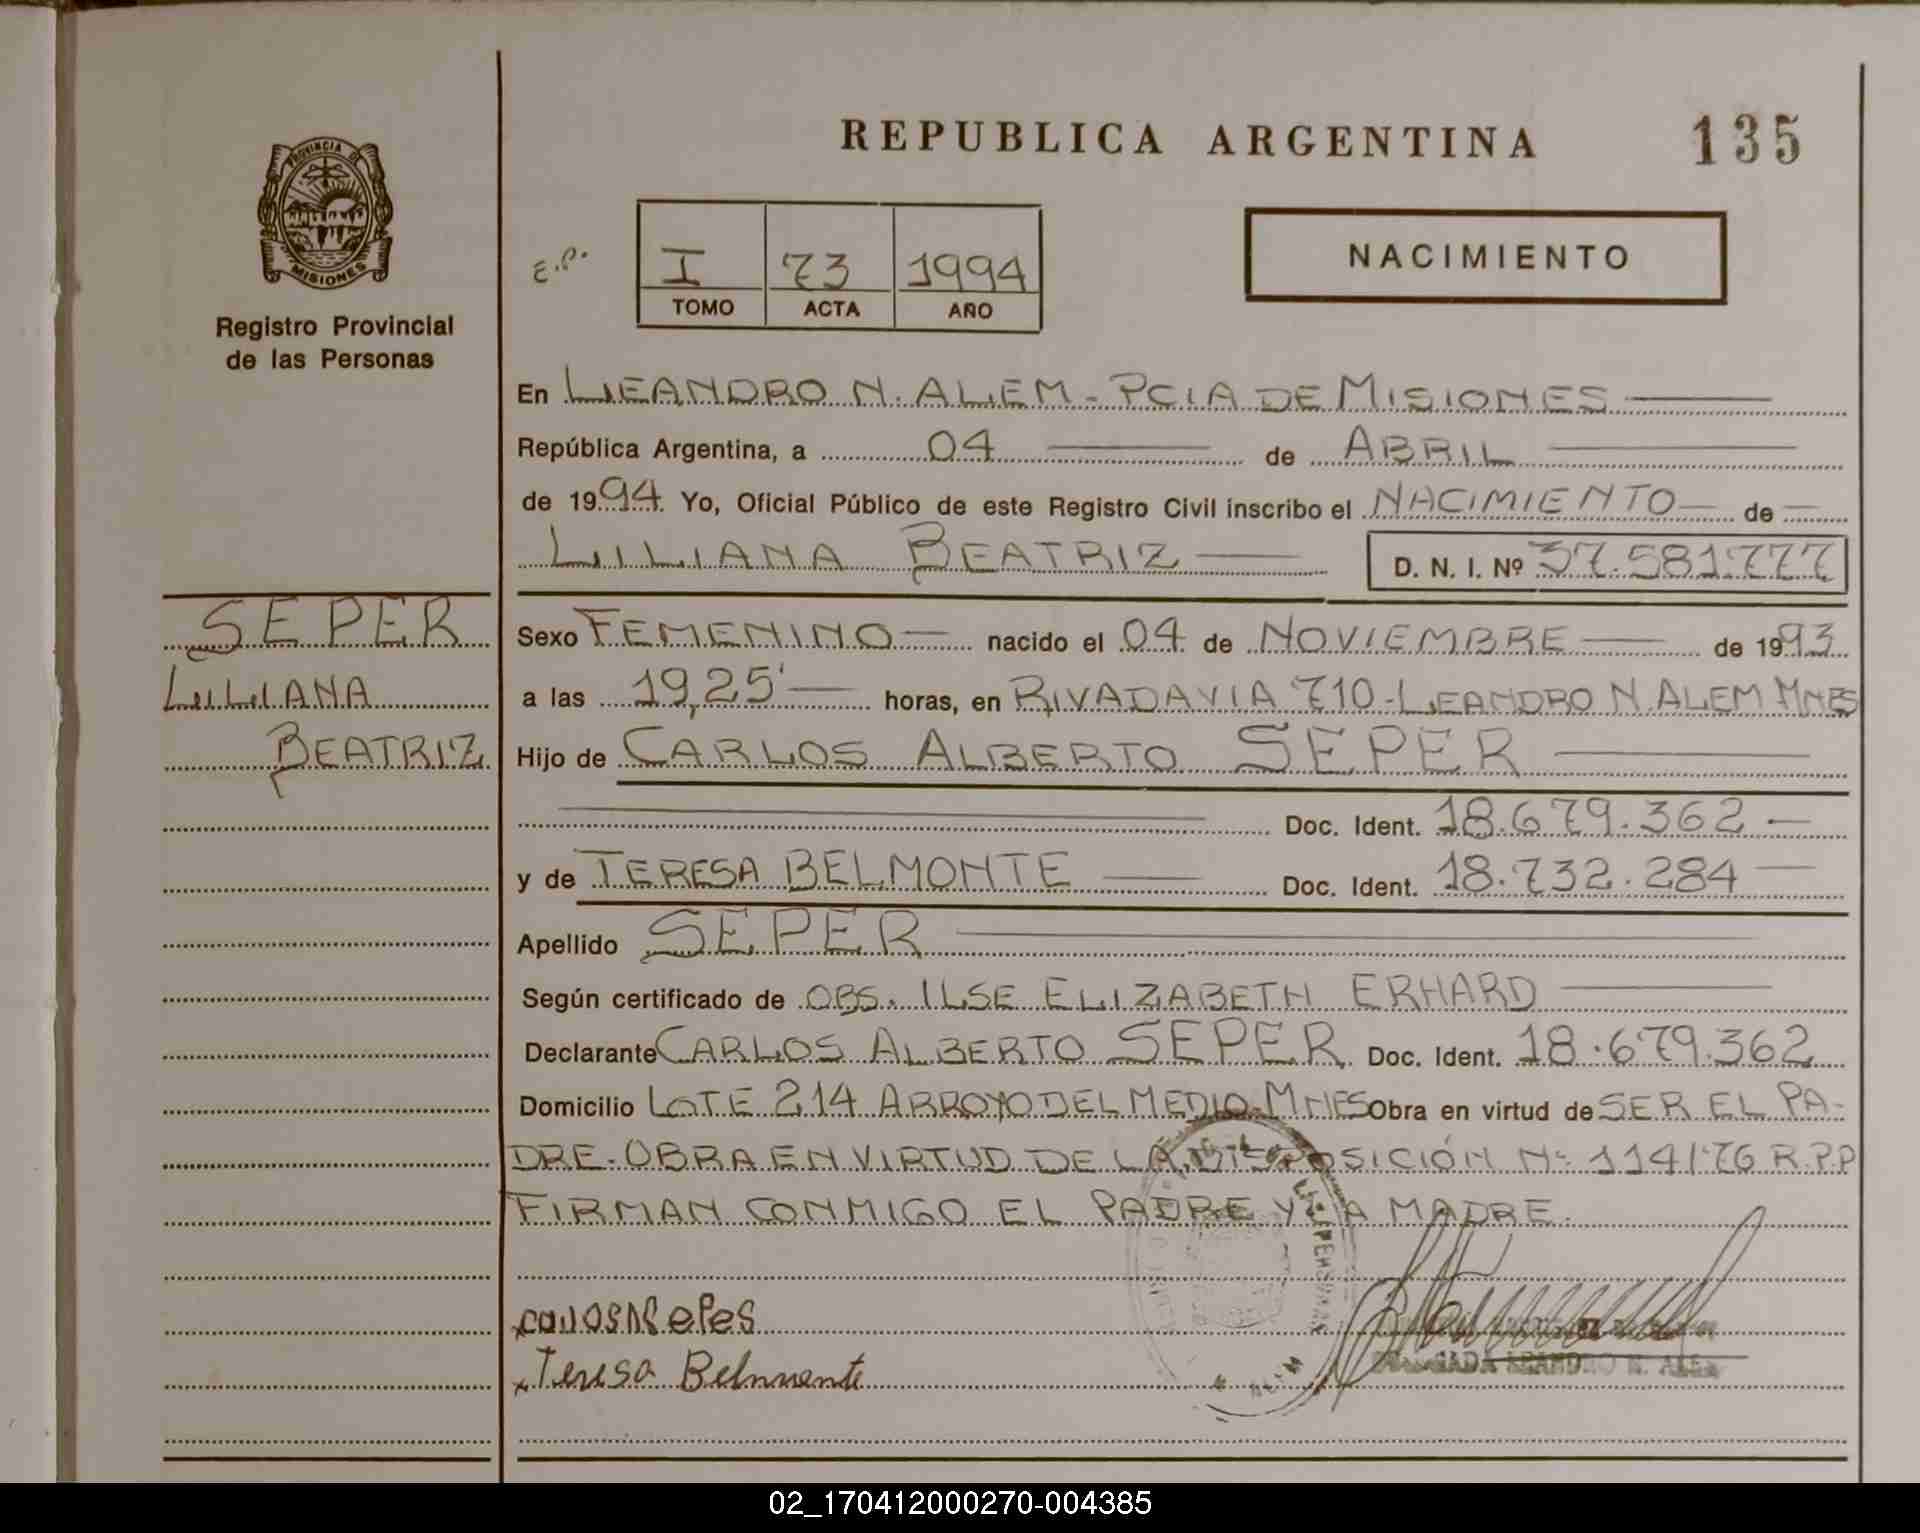 REPUBLICA ARGENTINA
135
PROVINCIA DE
MISIONES
Registro Provincial
de las Personas
E.P.
I 73 1994
TOMO ACTA AÑO
NACIMIENTO
En LEANDRO N. ALEM - PCIA DE MISIONES
República Argentina, a 04 de ABRIL
de 1994 Yo, Oficial Público de este Registro Civil inscribo el NACIMIENTO de
LILIANA BEATRIZ D. N. I. Nº 37.581.777
SEPER
LILIANA
BEATRIZ
Sexo FEMENINO nacido el 04 de NOVIEMBRE de 1993
a las 19,25' horas, en RIVADAVIA 710-LEANDRO N. ALEM MNES
Hijo de CARLOS ALBERTO SEPER
Doc. Ident. 18.679.362
y de TERESA BELMONTE Doc. Ident. 18.732.284
Apellido SEPER
Según certificado de OBS. ILSE ELIZABETH ERHARD
Declarante CARLOS ALBERTO SEPER Doc. Ident. 18.679.362
Domicilio LOTE 214 ARROYO DEL MEDIO-MNES Obra en virtud de SER EL PA-
DRE-OBRA EN VIRTUD DE LA DISPOSICIÓN Nº 114/76 R.P.P
FIRMAN CONMIGO EL PADRE Y LA MADRE.
Teresa Belmonte
LEANDRO N. ALEM
02_170412000270-004385